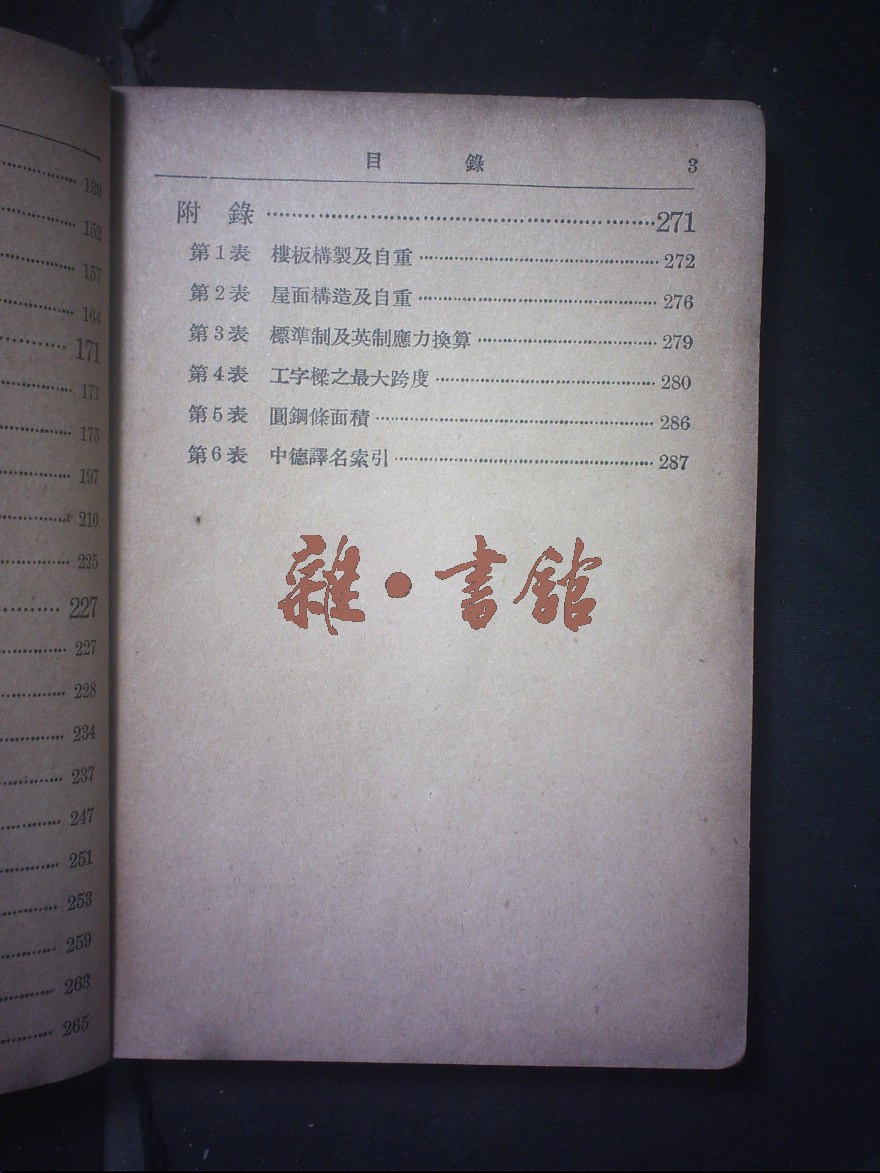 139
152
157
164
171
171
175
197
210
225
227
227
228
234
237
247
251
253
259
263
265
目 錄 3
附 錄 271
第1表 樓板構製及自重 272
第2表 屋面構造及自重 276
第3表 標準制及英制應力換算 279
第4表 工字樑之最大跨度 280
第5表 圓鋼條面積 286
第6表 中德譯名索引 287
雜·書館